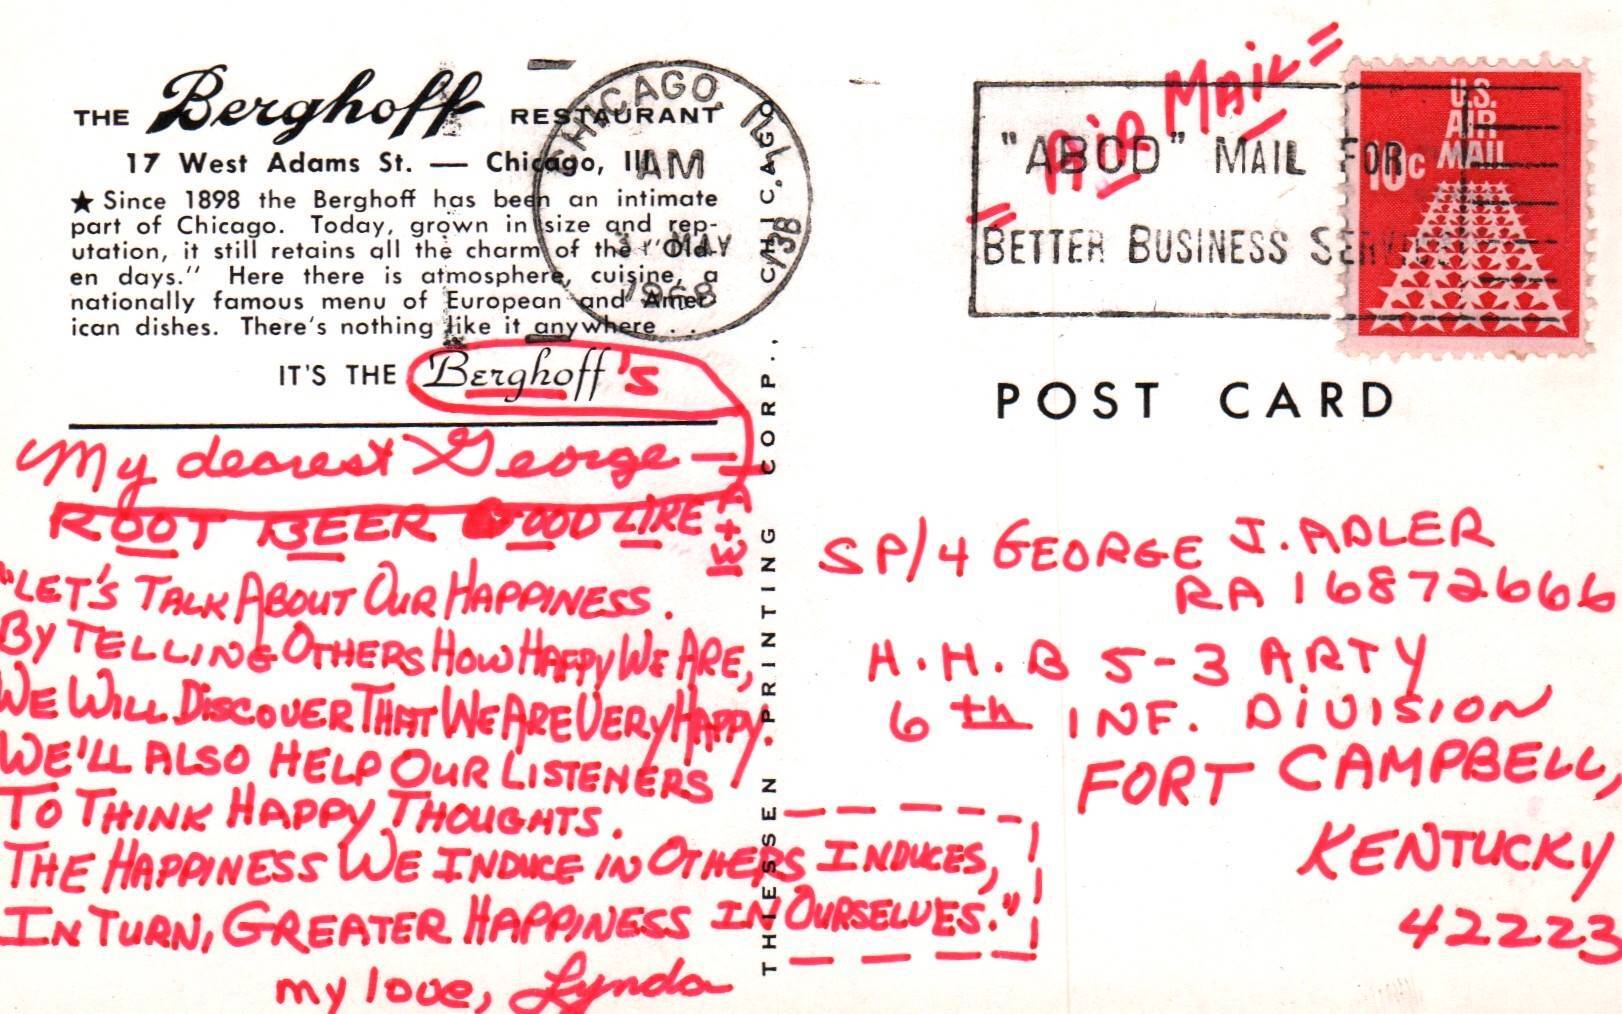 THE Berghoff RESTAURANT
17 West Adams St. — Chicago, Ill.
★ Since 1898 the Berghoff has been an intimate
part of Chicago. Today, grown in size and rep-
utation, it still retains all the charm of the "Old-
en days." Here there is atmosphere, cuisine, a
nationally famous menu of European and Amer-
ican dishes. There's nothing like it anywhere . .
IT'S THE Berghoff's
My dearest George —
ROOT BEER GOOD LIKE A+W
"LET'S TALK ABOUT OUR HAPPINESS.
BY TELLING OTHERS HOW HAPPY WE ARE,
WE WILL DISCOVER THAT WE ARE VERY HAPPY.
WE'LL ALSO HELP OUR LISTENERS
TO THINK HAPPY THOUGHTS.
THE HAPPINESS WE INDUCE IN OTHERS INDUCES,
IN TURN, GREATER HAPPINESS IN OURSELVES."
my love, Lynda
THIESSEN PRINTING CORP., CHICAGO
73B
CHICAGO, ILL
AM
MAY
1968
"ABCD" MAIL FOR
BETTER BUSINESS SERVICE!
=AIR MAIL=
U.S.
AIR
MAIL
10c
POST CARD
SP/4 GEORGE J. ADLER
RA 16872666
H.H.B 5-3 ARTY
6th INF. DIVISION
FORT CAMPBELL,
KENTUCKY
42223